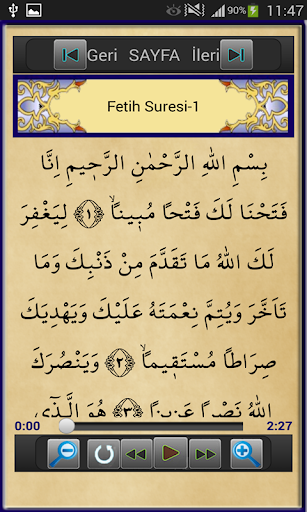 90% 11:47
Geri SAYFA İleri
Fetih Suresi-1
بِسْمِ اللهِ الرَّحْمٰنِ الرَّحٖيمِ اِنَّا
فَتَحْنَا لَكَ فَتْحاً مُبٖيناًۙ ﴿١﴾ لِيَغْفِرَ
لَكَ اللهُ مَا تَقَدَّمَ مِنْ ذَنْبِكَ وَمَا
تَاَخَّرَ وَيُتِمَّ نِعْمَتَهُ عَلَيْكَ وَيَهْدِيَكَ
صِرَاطاً مُسْتَقٖيماًۙ ﴿٢﴾ وَيَنْصُرَكَ
اللهُ نَصْراً عَزٖيزاً ﴿٣﴾ هُوَ الَّذٖٓى
0:00 2:27